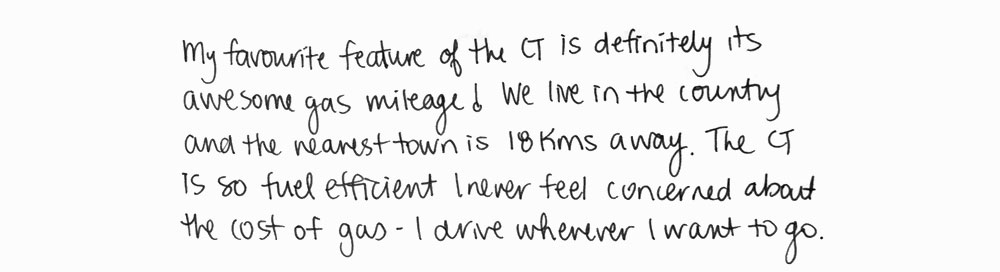 My favourite feature of the CT is definitely its
awesome gas mileage! We live in the country
and the nearest town is 18 Kms away. The CT
is so fuel efficient I never feel concerned about
the cost of gas - I drive wherever I want to go.